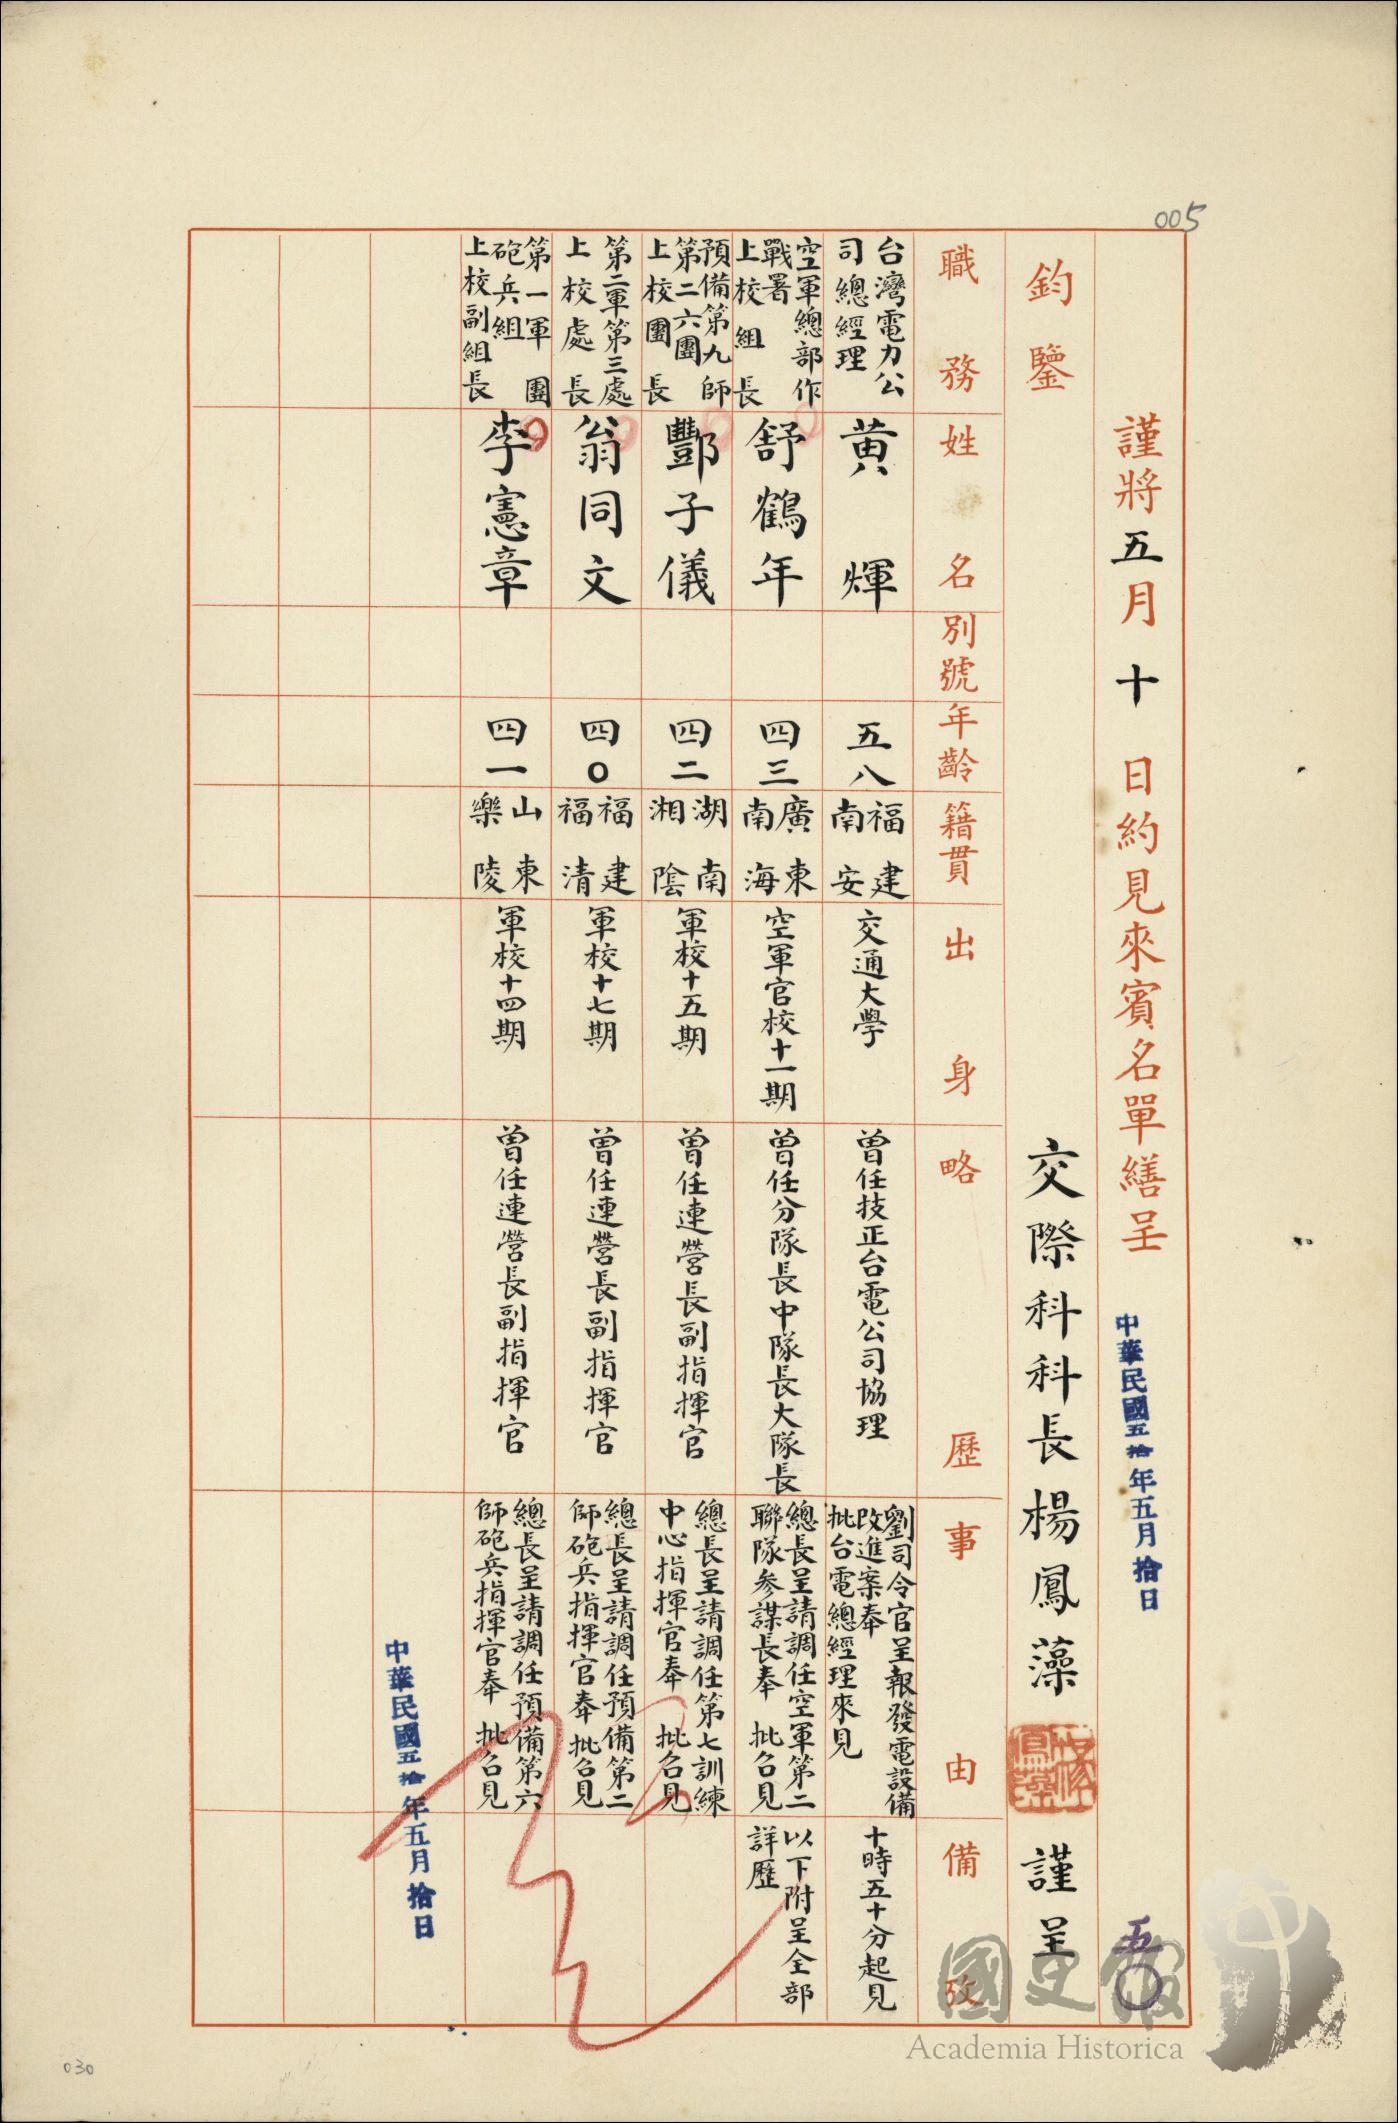 005
謹將五月十日約見來賓名單繕呈
中華民國五拾年五月拾日
五〇
鈞鑒
交際科科長楊鳳藻
謹呈
職務
姓名
別號
年齡
籍貫
出身
略歷
事由
備攷
台灣電力公
司總經理
黄煇
五八
福建
南安
交通大學
曾任技正台電公司協理
劉司令官呈報發電設備
改進案奉
批台電總經理來見
十時五十分起見
空軍總部作
戰署
上校組長
舒鶴年
四三
廣東
南海
空軍官校十一期
曾任分隊長中隊長大隊長
總長呈請調任空軍第二
聯隊參謀長奉 批召見
以下附呈全部
詳歷
預備第九師
第二六團
上校團長
酆子儀
四二
湖南
湘陰
軍校十五期
曾任連營長副指揮官
總長呈請調任第七訓練
中心指揮官奉 批召見
第二軍第三處
上校處長
翁同文
四〇
福建
福清
軍校十七期
曾任連營長副指揮官
總長呈請調任預備第二
師砲兵指揮官奉批召見
第一軍團
砲兵組
上校副組長
李憲章
四一
山東
樂陵
軍校十四期
曾任連營長副指揮官
總長呈請調任預備第六
師砲兵指揮官奉 批召見
中華民國五拾年五月拾日
國史館
Academia Historica
030